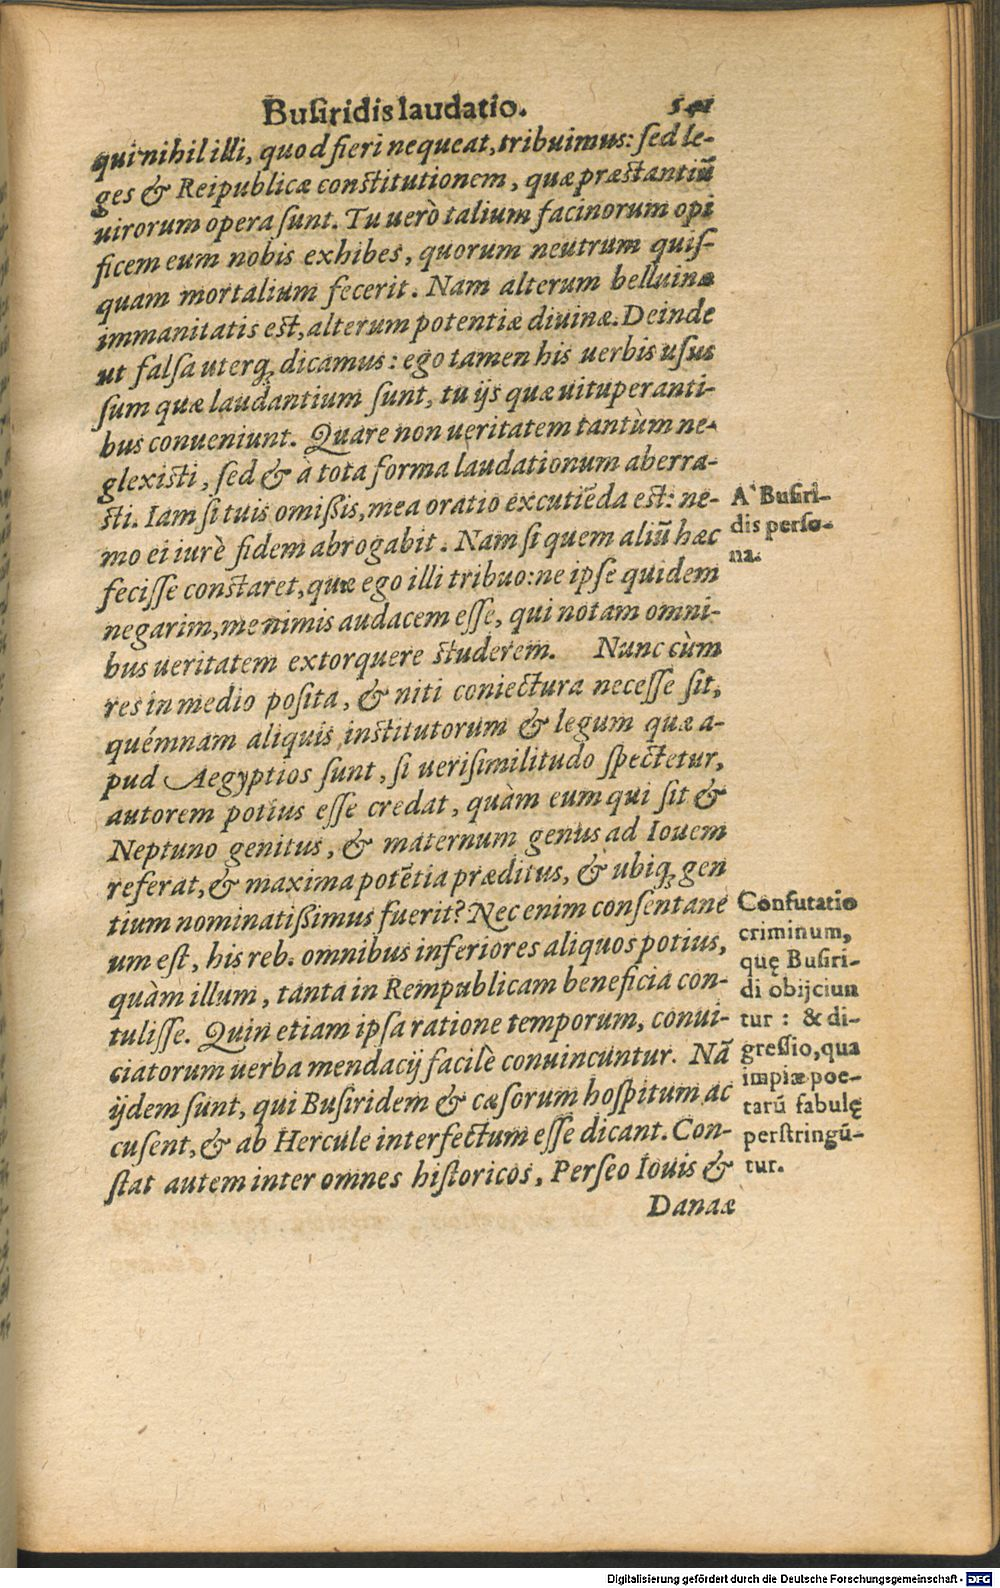 Buſiridis laudatio. 541
qui nihil illi, quod fieri nequeat, tribuimus: ſed le-
ges & Reipublicæ conſtitutionem, quæ præſtantiũ
uirorum opera ſunt. Tu uerò talium facinorum opi
ficem eum nobis exhibes, quorum neutrum quiſ-
quam mortalium fecerit. Nam alterum belluinæ
immanitatis eſt, alterum potentiæ diuinæ. Deinde
ut falſa uterq; dicamus: ego tamen his uerbis uſus
ſum quæ laudantium ſunt, tu ijs quæ uituperanti-
bus conueniunt. Quare non ueritatem tantùm ne-
glexiſti, ſed & à tota forma laudationum aberra-
ſti. Iam ſi tuis omißis, mea oratio excutiẽda eſt: ne-
mo ei iurè fidem abrogabit. Nam ſi quem aliũ hæc
feciſſe conſtaret, quæ ego illi tribuo: ne ipſe quidem
negarim, me nimis audacem eſſe, qui notam omni-
bus ueritatem extorquere ſtuderem. Nunc cùm
res in medio poſita, & niti coniectura neceſſe ſit,
quémnam aliquis inſtitutorum & legum quæ a-
pud Aegyptios ſunt, ſi ueriſimilitudo ſpectetur,
autorem potius eſſe credat, quàm eum qui ſit &
Neptuno genitus, & maternum genus ad Iouem
referat, & maxima potẽtia præditus, & ubiq; gen
tium nominatißimus fuerit? Nec enim conſentane
um eſt, his reb. omnibus inferiores aliquos potius,
quàm illum, tanta in Rempublicam beneficia con-
tuliſſe. Quin etiam ipſa ratione temporum, conui-
ciatorum uerba mendacij facilè conuincuntur. Nã
ijdem ſunt, qui Buſiridem & cæſorum hoſpitum ac
cuſent, & ab Hercule interfectum eſſe dicant. Con-
ſtat autem inter omnes hiſtoricos, Perſeo Iouis &
Danaæ
A' Buſiri-
dis perſo-
na.
Confutatio
criminum,
quę Buſiri-
di obijciun
tur: & di-
greſſio, qua
impiæ poe-
tarũ fabulę
perſtringũ-
tur.
Digitalisierung gefördert durch die Deutsche Forschungsgemeinschaft - DFG